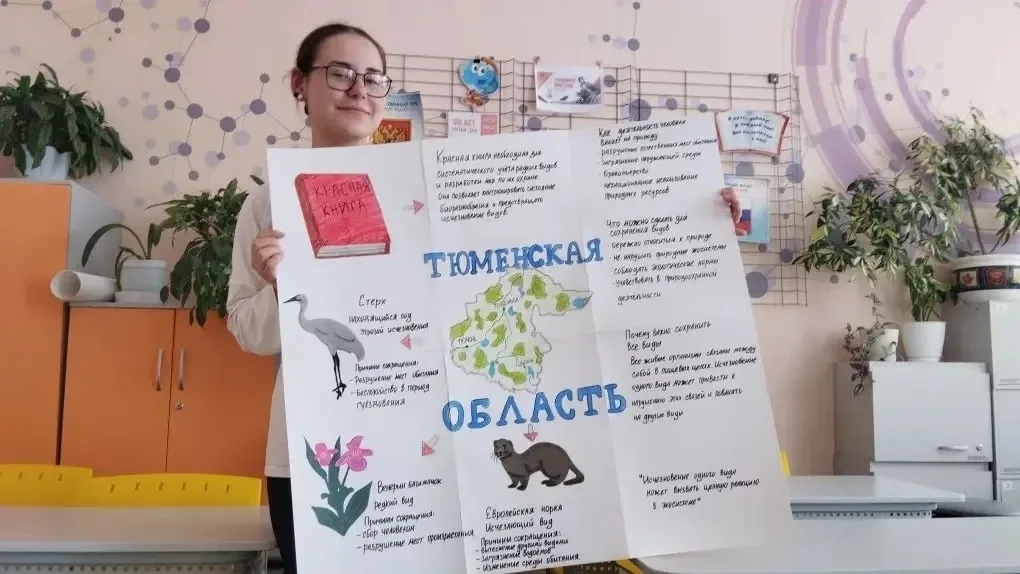 КРАСНАЯ
КНИГА
Красная книга необходима для
систематического учёта редких видов
и разработки мер по их охране.
Она позволяет контролировать состояние
биоразнообразия и предотвращать
исчезновение видов.
Как деятельность человека
влияет на природу
- разрушение естественных мест обитания
- загрязнение окружающей среды
- Браконьерство
- нерациональное использование
природных ресурсов.
ТЮМЕНСКАЯ
ОБЛАСТЬ
Что можно сделать для
сохранения видов
- Бережно относиться к природе
не нарушать природные экосистемы
соблюдать экологические нормы
участвовать в природоохранной
деятельности
Стерх
находящийся под
угрозой исчезновения
Причины сокращения:
- Разрушение мест обитания
- Беспокойство в период
гнездования
Почему важно сохранить
все виды
Все живые организмы связаны между
собой в пищевых цепях. Исчезновение
одного вида может привести к
нарушению этих связей и повлиять
на другие виды
Венерин башмачок
редкий вид
Причины сокращения:
- сбор человеком
- разрушение мест произрастания.
Европейская норка
Исчезающий вид
Причины сокращения:
- вытеснение другими видами
- загрязнение водоёмов
- Изменение среды обитания.
"Исчезновение одного вида
может вызвать цепную реакцию
в экосистеме"
80 ЛЕТ